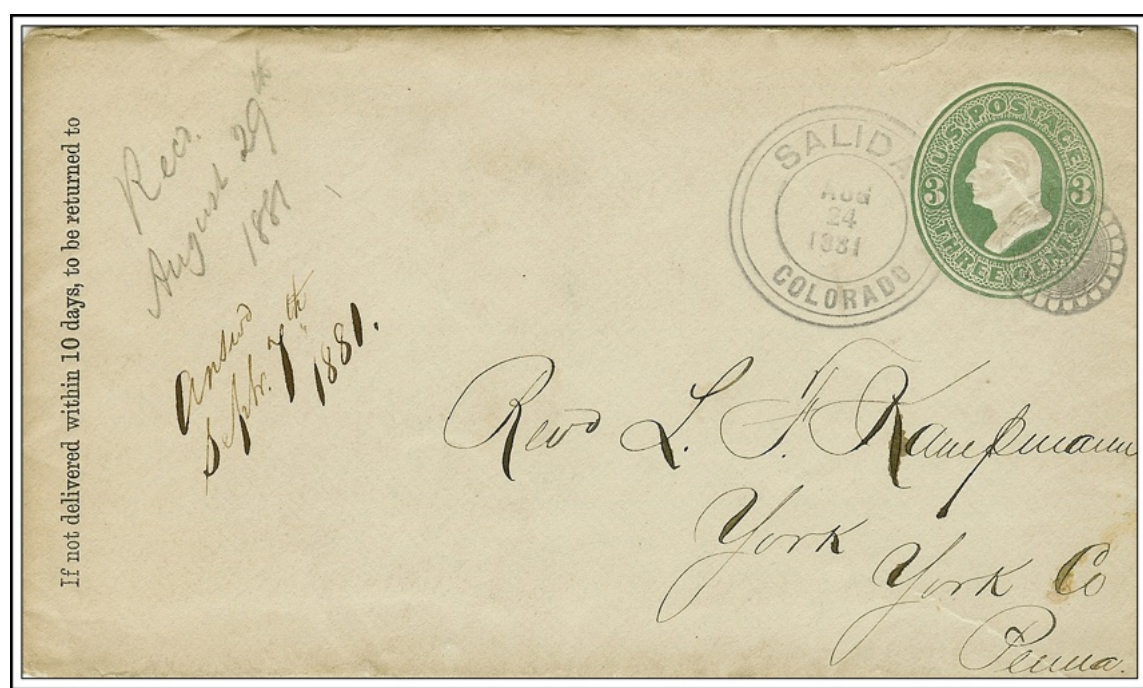 If not delivered within 10 days, to be returned to
Recd.
August 29th
1881
Answd
Septr. 7th
1881.
SALIDA
AUG
24
1881
COLORADO
U.S. POSTAGE
3 3
THREE CENTS
Revd L. F. Kampmann
York
York Co
Penna.